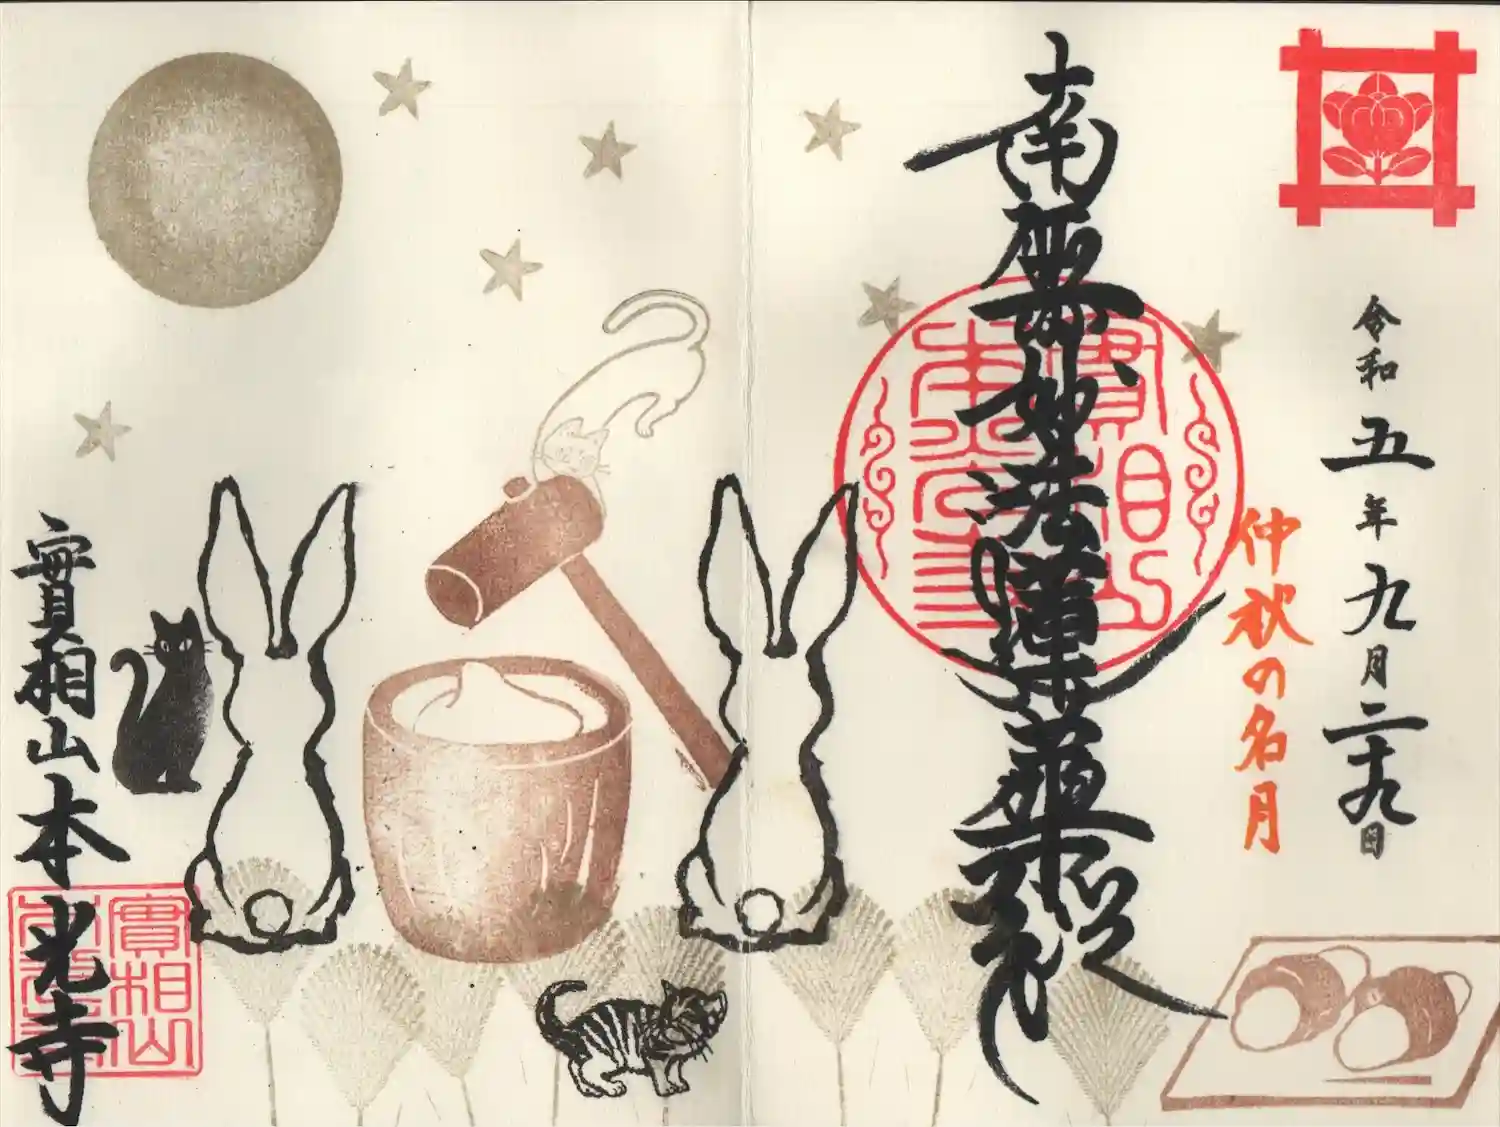 令和五年九月二十九日
仲秋の名月
南無妙法蓮華経
實相山
本光寺
實相山本光寺
實相山
本光寺